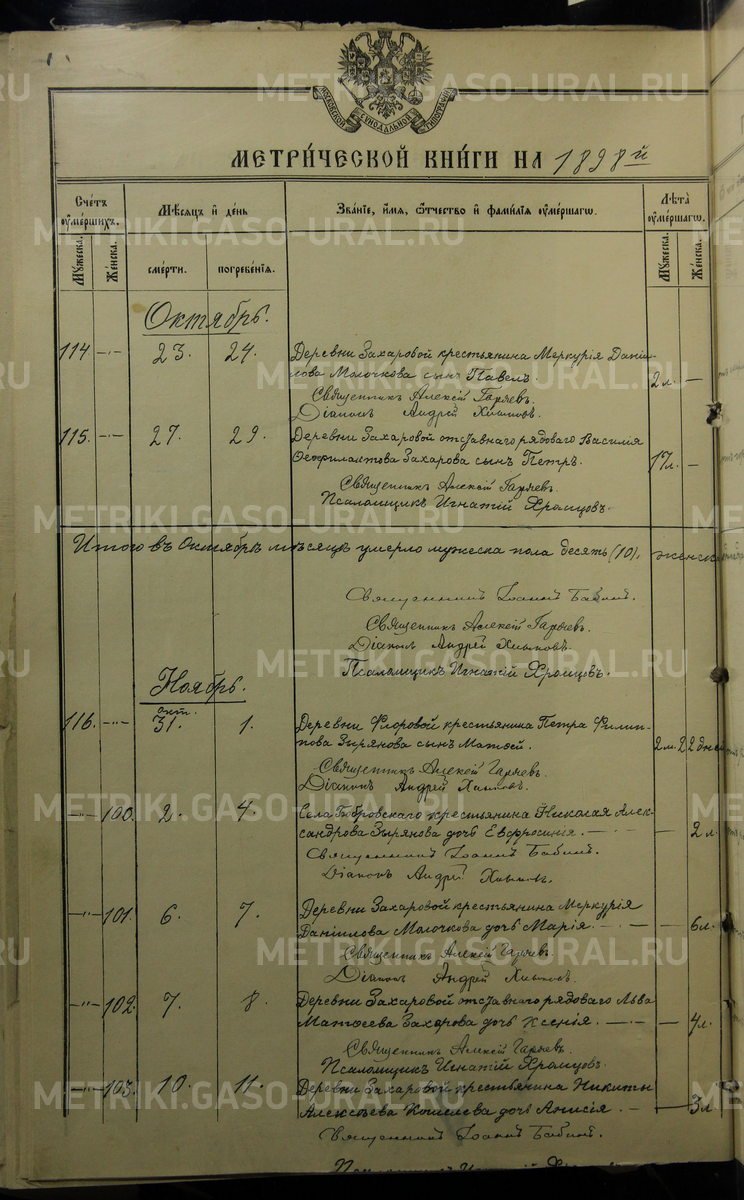 МОСКОВСКОЙ СѴНОДАЛЬНОЙ ТИПОГРАФІИ
МЕТРИ́ЧЕСКОЙ КНИ́ГИ НА 1898й
Счетъ ᲂумершихъ.
Мѣсяцъ и день
Званіе, имя, отчество и фамилія ᲂумершагѡ.
Лѣта ᲂумершагѡ.
Мужеска. Женска. смерти. погребенія. Мужеска. Женска.
Октябрь.
114 —"— 23. 24. Деревни Захаровой крестьянина Меркурія Данiи-
лова Молочкова сынъ Павелъ. 2 л. —
Священникъ Алексій Гаряев.
Діаконъ Андрей
115. —"— 27. 29. Деревни Захаровой отставнаго рядоваго Василія
Ѳеофилактова Захарова сынъ Петръ. 17 л. —
Священникъ Алексій Гаряев.
Псаломщикъ Игнатій Храмцовъ.
Итого въ Октябрѣ мѣсяцѣ умерло мужеска пола десять (10). женск
Священникъ Іоаннъ Бабинъ.
Священникъ Алексей Гаряев.
Діаконъ Андрей
Псаломщикъ Игнатій Храмцовъ.
Ноябрь.
116. —"— окт. 31. 1. Деревни Флоровой крестьянина Петра Филип-
пова Зырянова сынъ Матѳей. 2 м. 22 дней
Священникъ Алексей Гаряев.
Діаконъ Андрей
—"— 100. 2. 4. Села Бобровскаго крестьянина Николая Алек-
сандрова Зырянова дочь Евфросинія. — 2 л.
Священникъ Іоаннъ Бабинъ.
Діаконъ Андрей
—"— 101. 6. 7. Деревни Захаровой крестьянина Меркурія
Даніилова Молочкова дочь Марія. — 6 л.
Священникъ Алексей Гаряев.
Діаконъ Андрей
—"— 102. 7. 8. Деревни Захаровой отставнаго рядоваго Льва
Матѳеева Захарова дочь Ксенія. — 4 л.
Священникъ Алексей Гаряев.
Псаломщикъ Игнатій Храмцовъ.
—"— 103. 10. 11. Деревни Захаровой крестьянина Никиты
Алексѣева Кошелева дочь Анисія. — 3 л.
Священникъ Іоаннъ Бабинъ.
METRIKI.GASO-URAL.RU